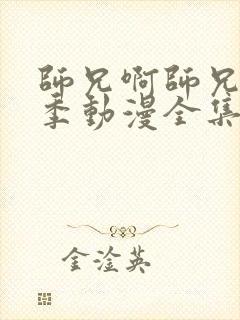 師兄啊師兄
季動漫全集
金淦英